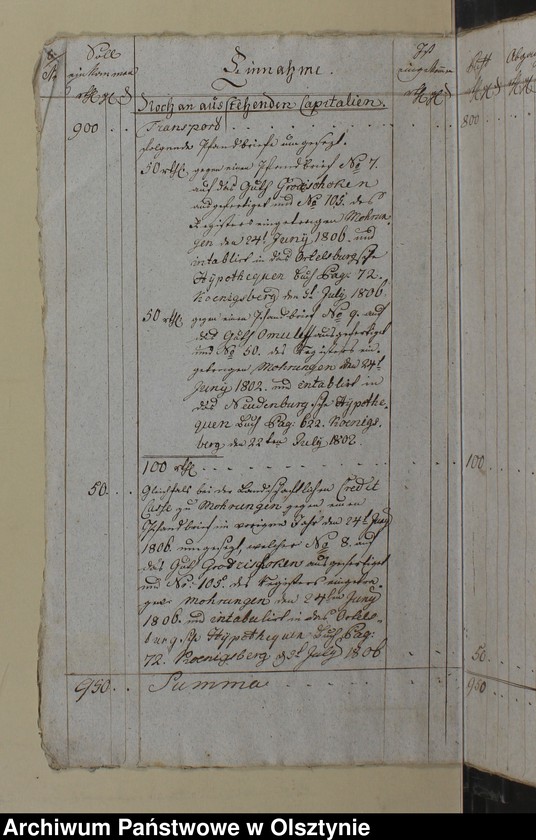 Soll
einkommen
Einnahme.
Ist
eingekommen
Rest
Abgang
Noch an ausstehenden Capitalien.
900 Transport 800
folgende Pfandbriefe umgesezt.
50 rthl. gegen einen Pfandbrief No 7.
auf das Guth Grodzischken
ausgefertiget und No 105. des
Registers eingetragen Mohrun-
gen den 24t. Juny 1806. und
intabulirt in das Ortelsburgsche
Hypothequen Buch Pag: 72.
Koenigsberg den 3t July 1806
50 rthl. gegen einen Pfandbrief No 9. auf
das Guth Omuleff ausgefertiget
und No 60. des Registers ein-
getragen Mohrungen den 24t
Juny 1802. und intabulirt in
das Neidenburgsche Hypothe-
quen Buch Pag: 622. Koenigs-
berg den 22ten July 1802.
100 rthl. 100
50. Gleichfals bei der Landschaftlichen Credit
Casse zu Mohrungen gegen einen
Pfandbrief im vorigen Jahr den 24t Juny
1806. umgesezt, welcher No 8. auf
das Guth Grodzischken ausgefertiget
und No: 105. des Registers eingetra-
gen Mohrungen den 24ten Juny
1806. und intabulirt in das Ortels-
burgsche Hypothequen Buch Pag:
72. Koenigsberg d. 3t July 1806 50
950 Summa 950
Archiwum Państwowe w Olsztynie